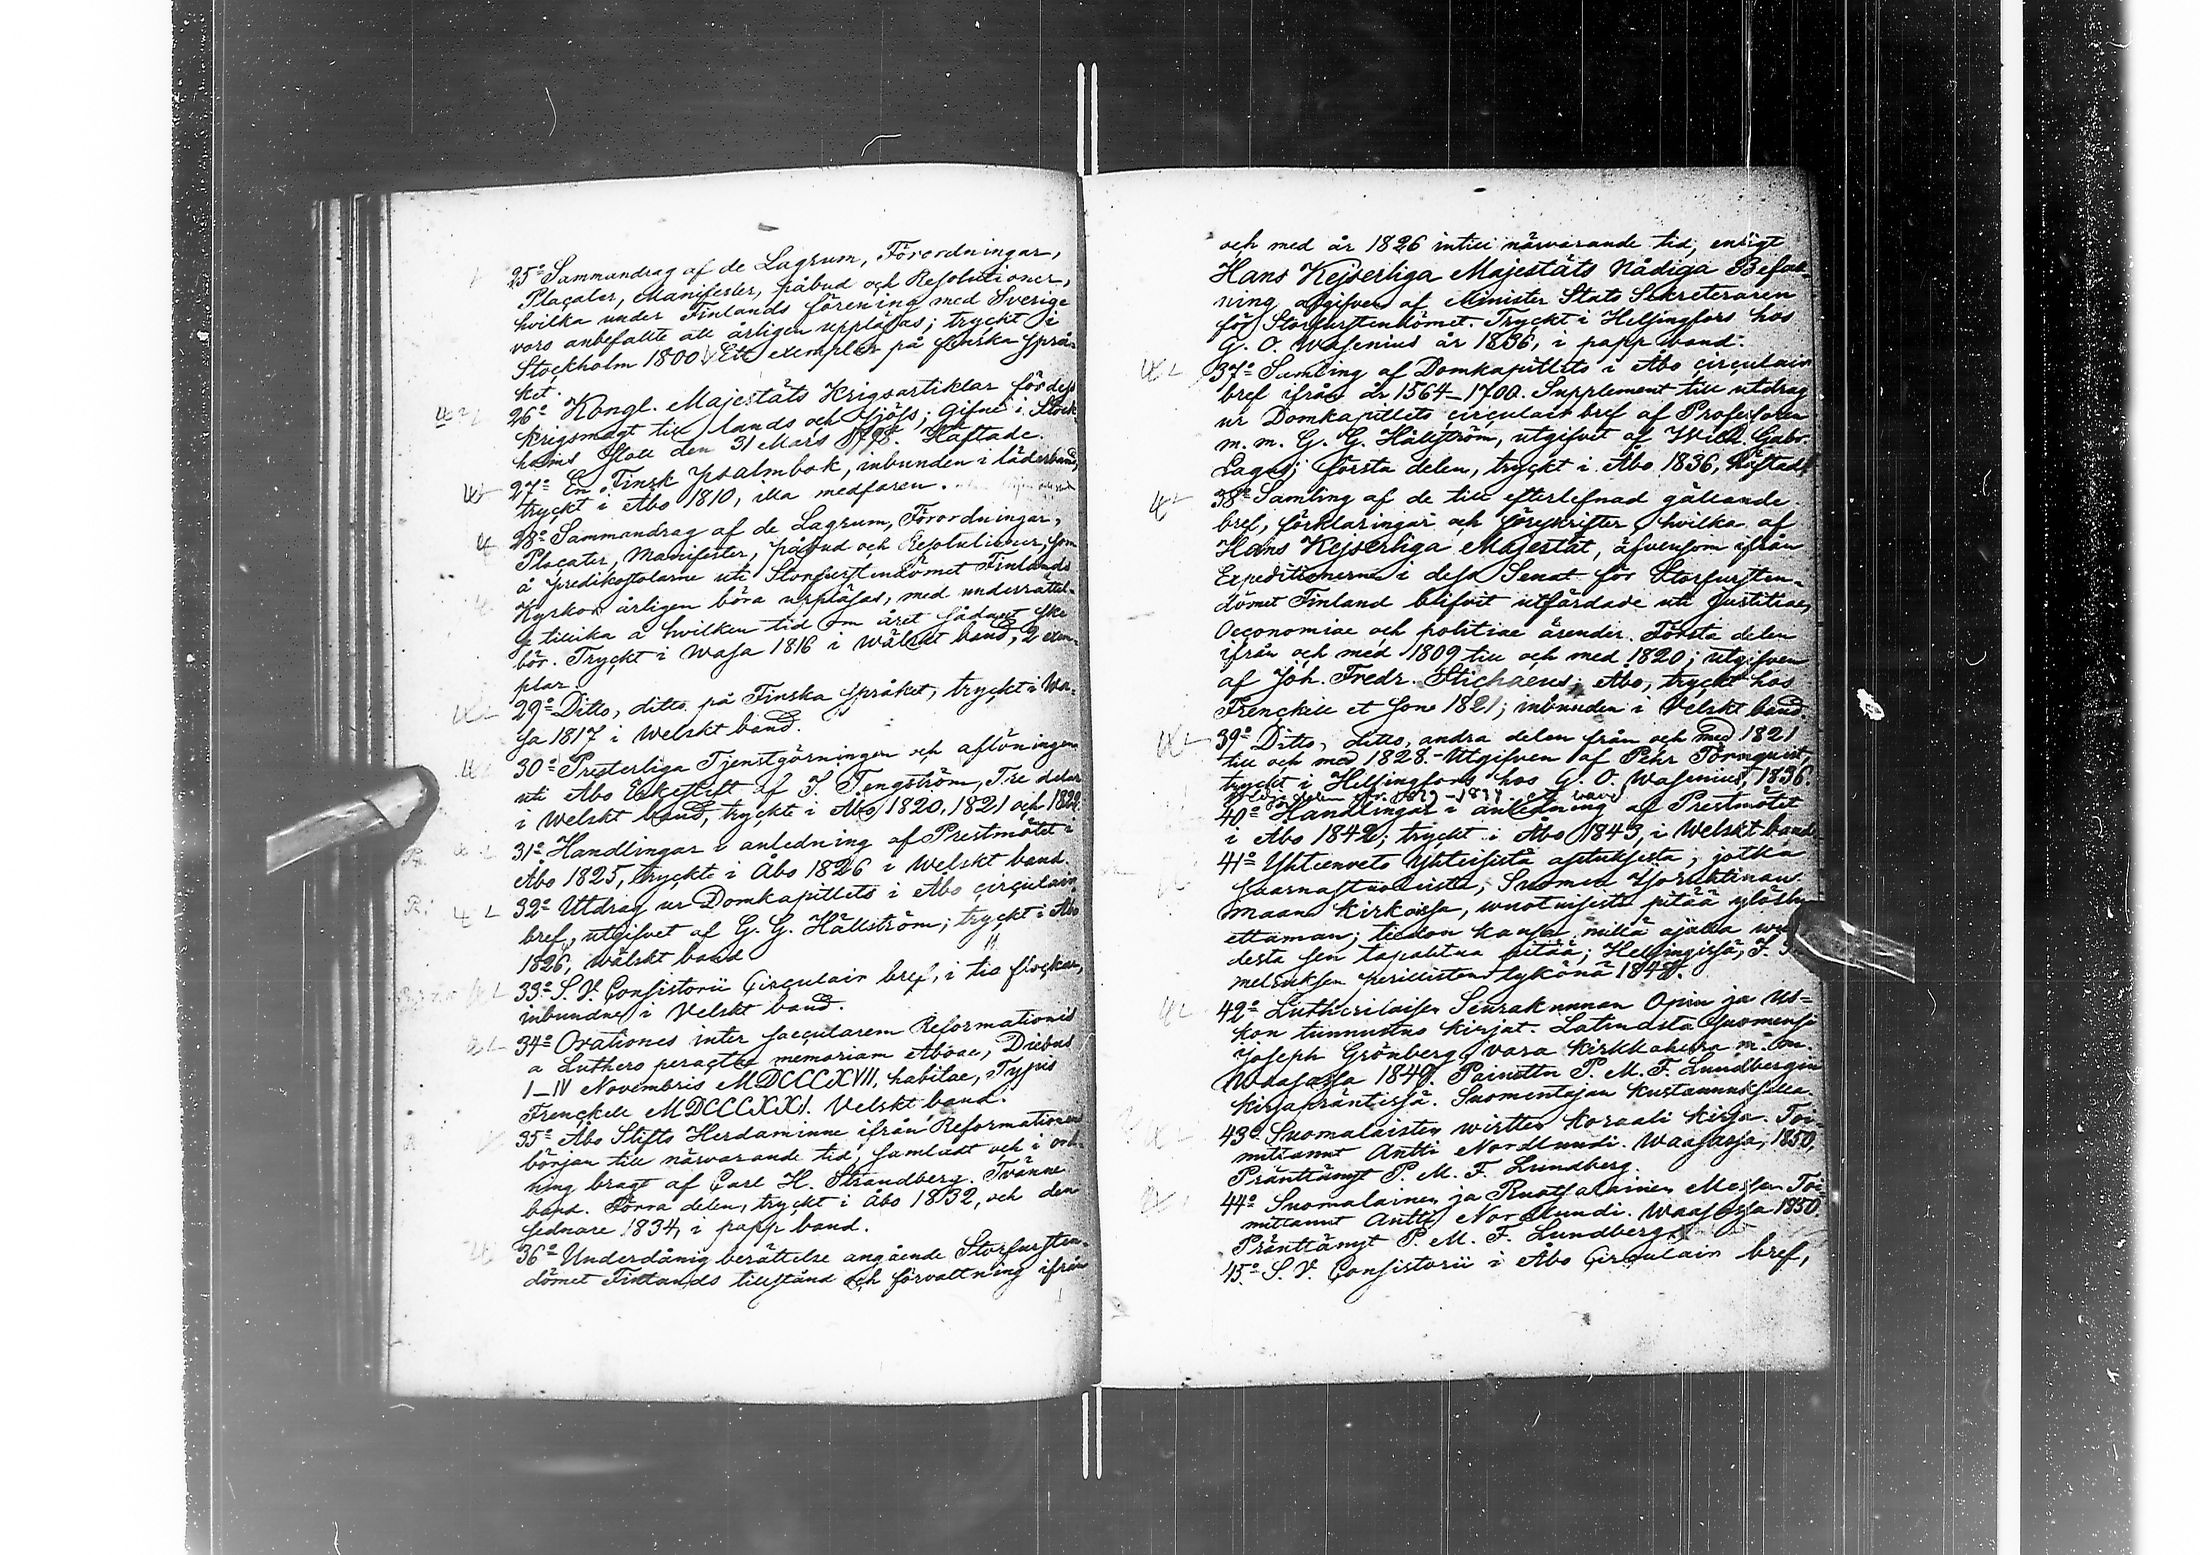 25º Sammandrag af de Lagrum, Förordningar,
Placater, Manifester, påbud och Resolutioner,
hvilka under Finlands förening med Sverige
voro anbefallte att årligen uppläsas; tryckt i
Stockholm 1800. Ett exemplar på finska språ-
ket.
26º Kongl. Majestäts Krigsartiklar för dess
krigsmagt till lands och sjöss; gifne i Stock-
holms slott den 31 Mars 1798. Häftade.
27º En Finsk psalmbok, inbunden i läderband,
tryckt i Åbo 1810, illa medfaren.
28º Sammandrag af de Lagrum, Förordningar,
Placater, Manifester, påbud och Resolutioner, som
å predikostolarne uti Storfurstendömet Finlands
Kyrkor årligen böra uppläsas, med underrättel-
se tillika å hvilken tid om året sådant ske
bör. Tryckt i Wasa 1816 i wälskt band, 2 exem-
plar.
29º Ditto, ditto på Finska språket, tryckt i Wa-
sa 1817 i Welskt band.
30º Presterliga Tjenstgörningen och aflöningen
uti Åbo Erkestift af J. Tengström, Tre delar
i Welskt band, tryckte i Åbo 1820, 1821 och 1822.
31º Handlingar i anledning af Prestmötet i
Åbo 1825, tryckte i Åbo 1826 i Welskt band.
32º Utdrag ur Domkapitlets i Åbo circulair
bref, utgifvet af G. G. Hällström; tryckt i Åbo
1826, wälskt band
33º S. V. Consistorii Circulair bref, i tio flockar,
inbundne i Velskt band.
34º Orationes inter saecularem Reformationis
a Luthero peractae memoriam Aboae, Diebus
I–IV Novembris MDCCCXVII, habitae, Typis
Frenckell MDCCCXXI. Velskt band.
35º Åbo Stifts Herdaminne ifrån Reformationens
början till närvarande tid, samladt och i ord-
ning bragt af Carl H. Strandberg. Tvänne
band. Förra delen, tryckt i Åbo 1832, och den
sednare 1834, i papp band.
36º Underdånig berättelse angående Storfursten-
dömet Finlands tillstånd och förvaltning ifrån
och med år 1826 intill närvarande tid, enligt
Hans Kejserliga Majestäts Nådiga Befall-
ning afgifven af Minister Stats Sekreteraren
för Storfurstendömet. Tryckt i Helsingfors hos
G. O. Wasenius år 1836, i papp band.
37º Samling af Domkapitlets i Åbo circulair
bref ifrån år 1564–1700. Supplement till utdrag
ur Domkapitlets circulair bref af Professoren
m. m. G. G. Hällström, utgifvit af Wilh. Gabr.
Lagus; första delen, tryckt i Åbo 1836, häftad
38º Samling af de till efterlefnad gällande
bref, förklaringar och föreskrifter, hvilka af
Hans Kejserliga Majestät, äfvensom ifrån
Expeditionerne i dess Senat för Storfursten-
dömet Finland blifvit utfärdade uti Justitiae,
Oeconomiae och politiae ärender. Första delen
ifrån och med 1809 till och med 1820; utgifven
af Joh. Fredr. Stichaeus; Åbo, tryckt hos
Frenckell et Son 1821; inbunden i Velskt band.
39º Ditto, ditto, andra delen från och med 1821
till och med 1828. Utgifven af Pehr Törnquist,
tryckt i Helsingfors hos G. O. Wasenius, 1836.
40º Handlingar i anledning af Prestmötet
i Åbo 1842; tryckt i Åbo 1843, i Welskt band
41º Yhteenveto Yhteisistä asetuksista, jotka
saarnastuoleista, Suomen Isoruhtinaan
maan kirkoissa, wuotuisesti pitää ylösluo-
ettaman; tiedon kanssa millä ajalla
desta sen tapahtua pitää; Helsingissä, J.
melsuksen perillisten tykönä
42º Lutherilaisen Seurakunnan Opin ja Us-
kon tunnustus kirjat. Latinasta Suomensi
Joseph Grönberg, vara kirkkoherra m. m.
Waasassa 1849. Painettu P. M. F. Lundbergin
kirjapräntissä. Suomentajan kustannuksella.
43º Suomalaisten wirtten koraali kirja. Toi-
mittanut Antti Nordlundi. Waasassa, 1850,
Präntännyt P. M. F. Lundberg.
44º Suomalainen ja Ruotsalainen Messu. Toi-
mittanut Antti Nordlundi. Waasassa 1850.
Präntännyt P. M. F. Lundberg.
45º S. V. Consistorii i Åbo Circulair bref,